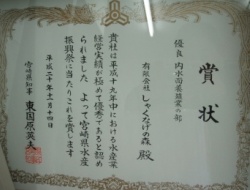 賞状
優良 内水面養殖業の部
有限会社 しゃくなげの森 殿
貴社は平成十九年中における水産業
経営実績が極めて優秀であると認め
られました よって宮崎県水産
振興祭に当たりこれを賞します
平成二十年十一月十四日
宮崎県知事 東国原英夫